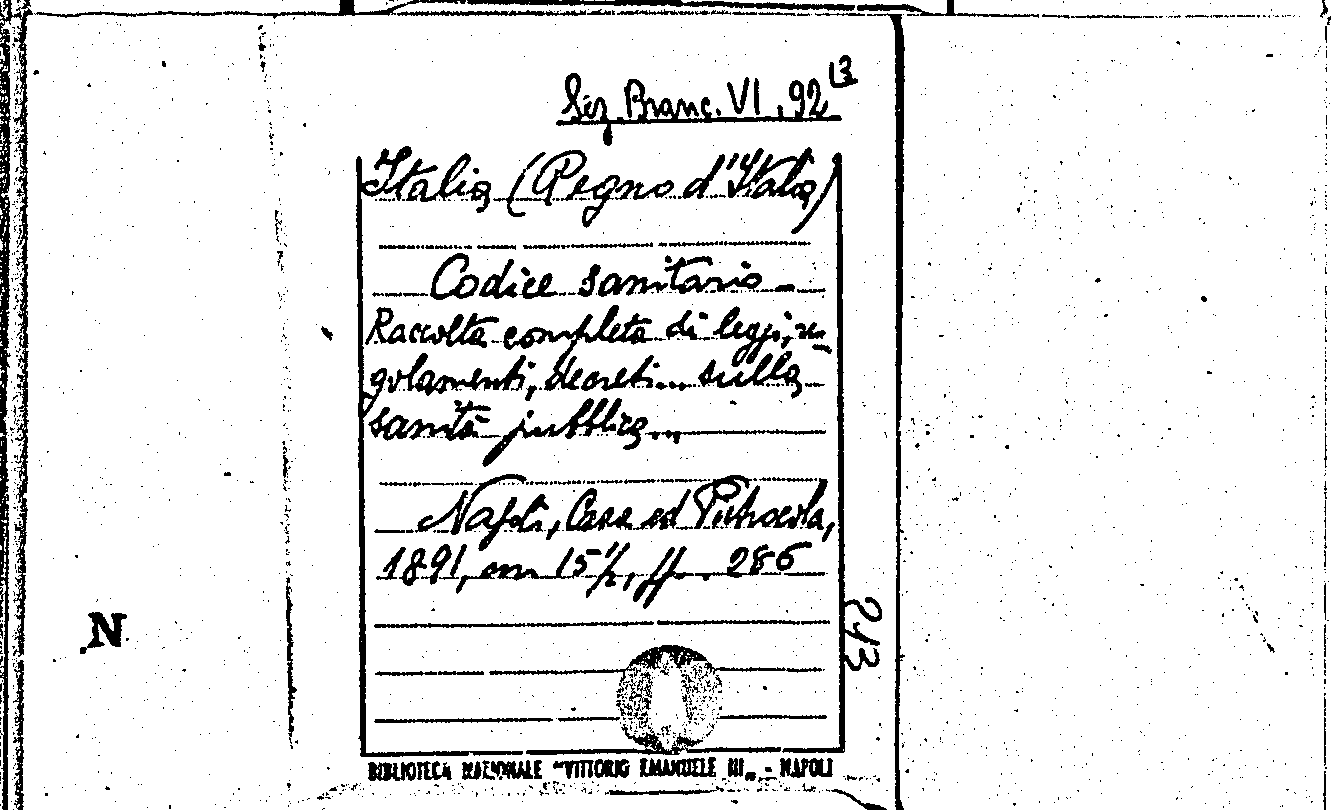 Sez. Branc. VI, 92 13
Italia (Regno d'Italia)
Codice sanitario -
Raccolta completa di leggi, re-
golamenti, decreti... sulla
sanità pubblica...
Napoli, Casa ed Pietrocola,
1891, cm 15½, pp. 286
243
N
BIBLIOTECA NAZIONALE "VITTORIO EMANUELE III„ - NAPOLI